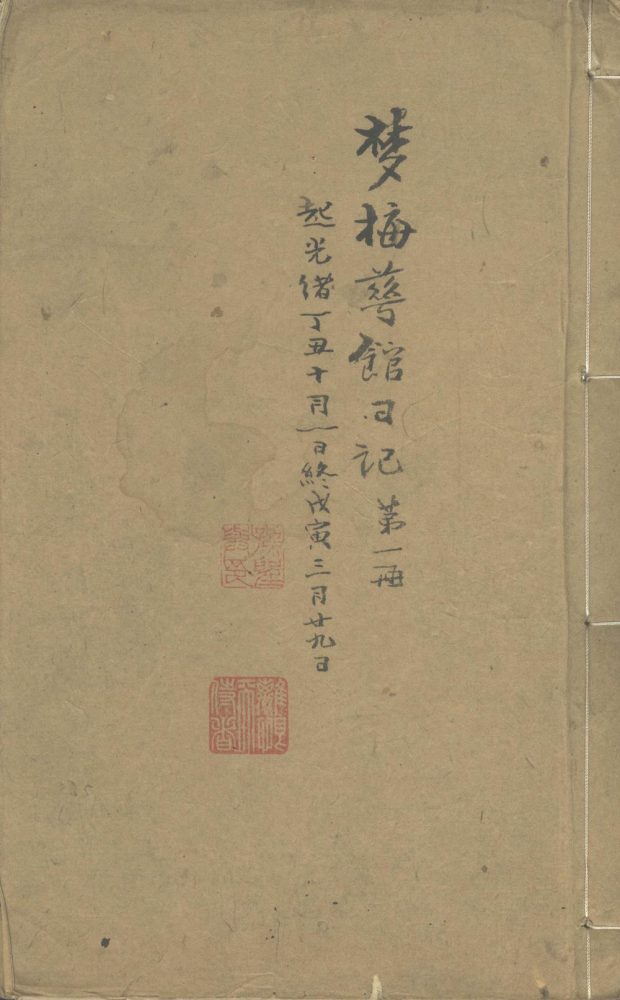 梦梅萼館日記 第一冊
起光緒丁丑十月一日終戊寅三月廿九日